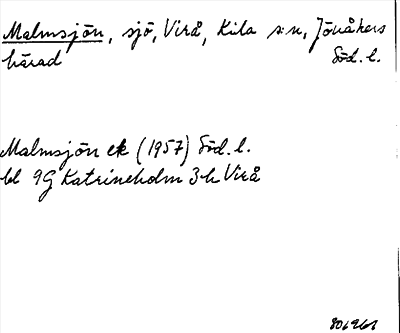 Malmsjön, sjö, Virå, Kila s:n, Jönåkers
härad Söd. l.
Malmsjön ek (1957) Söd. l.
bl 9G Katrineholm 3h Virå